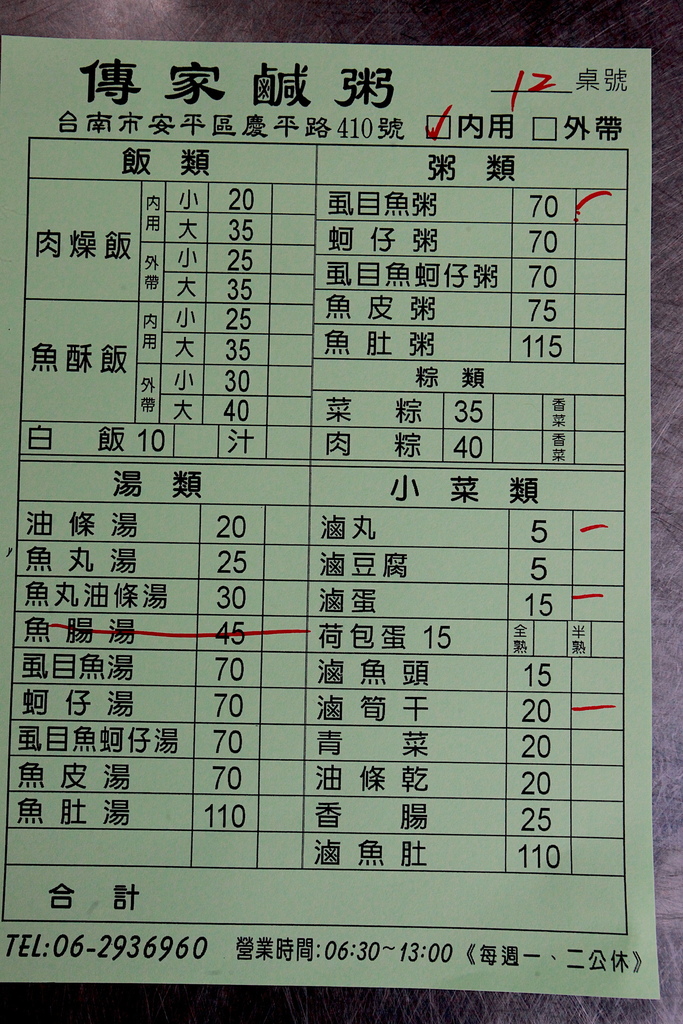 傳家鹹粥
12 桌號
台南市安平區慶平路410號 ✓內用 □外帶
飯類
肉燥飯
內用 小 20
大 35
外帶 小 25
大 35
魚酥飯
內用 小 25
大 35
外帶 小 30
大 40
白飯 10 汁
粥類
虱目魚粥 70
蚵仔粥 70
虱目魚蚵仔粥 70
魚皮粥 75
魚肚粥 115
粽類
菜粽 35 香菜
肉粽 40 香菜
湯類
油條湯 20
魚丸湯 25
魚丸油條湯 30
魚腸湯 45
虱目魚湯 70
蚵仔湯 70
虱目魚蚵仔湯 70
魚皮湯 70
魚肚湯 110
小菜類
滷丸 5
滷豆腐 5
滷蛋 15
荷包蛋 15 全熟 半熟
滷魚頭 15
滷筍干 20
青菜 20
油條乾 20
香腸 25
滷魚肚 110
合計
TEL:06-2936960 營業時間:06:30~13:00《每週一、二公休》